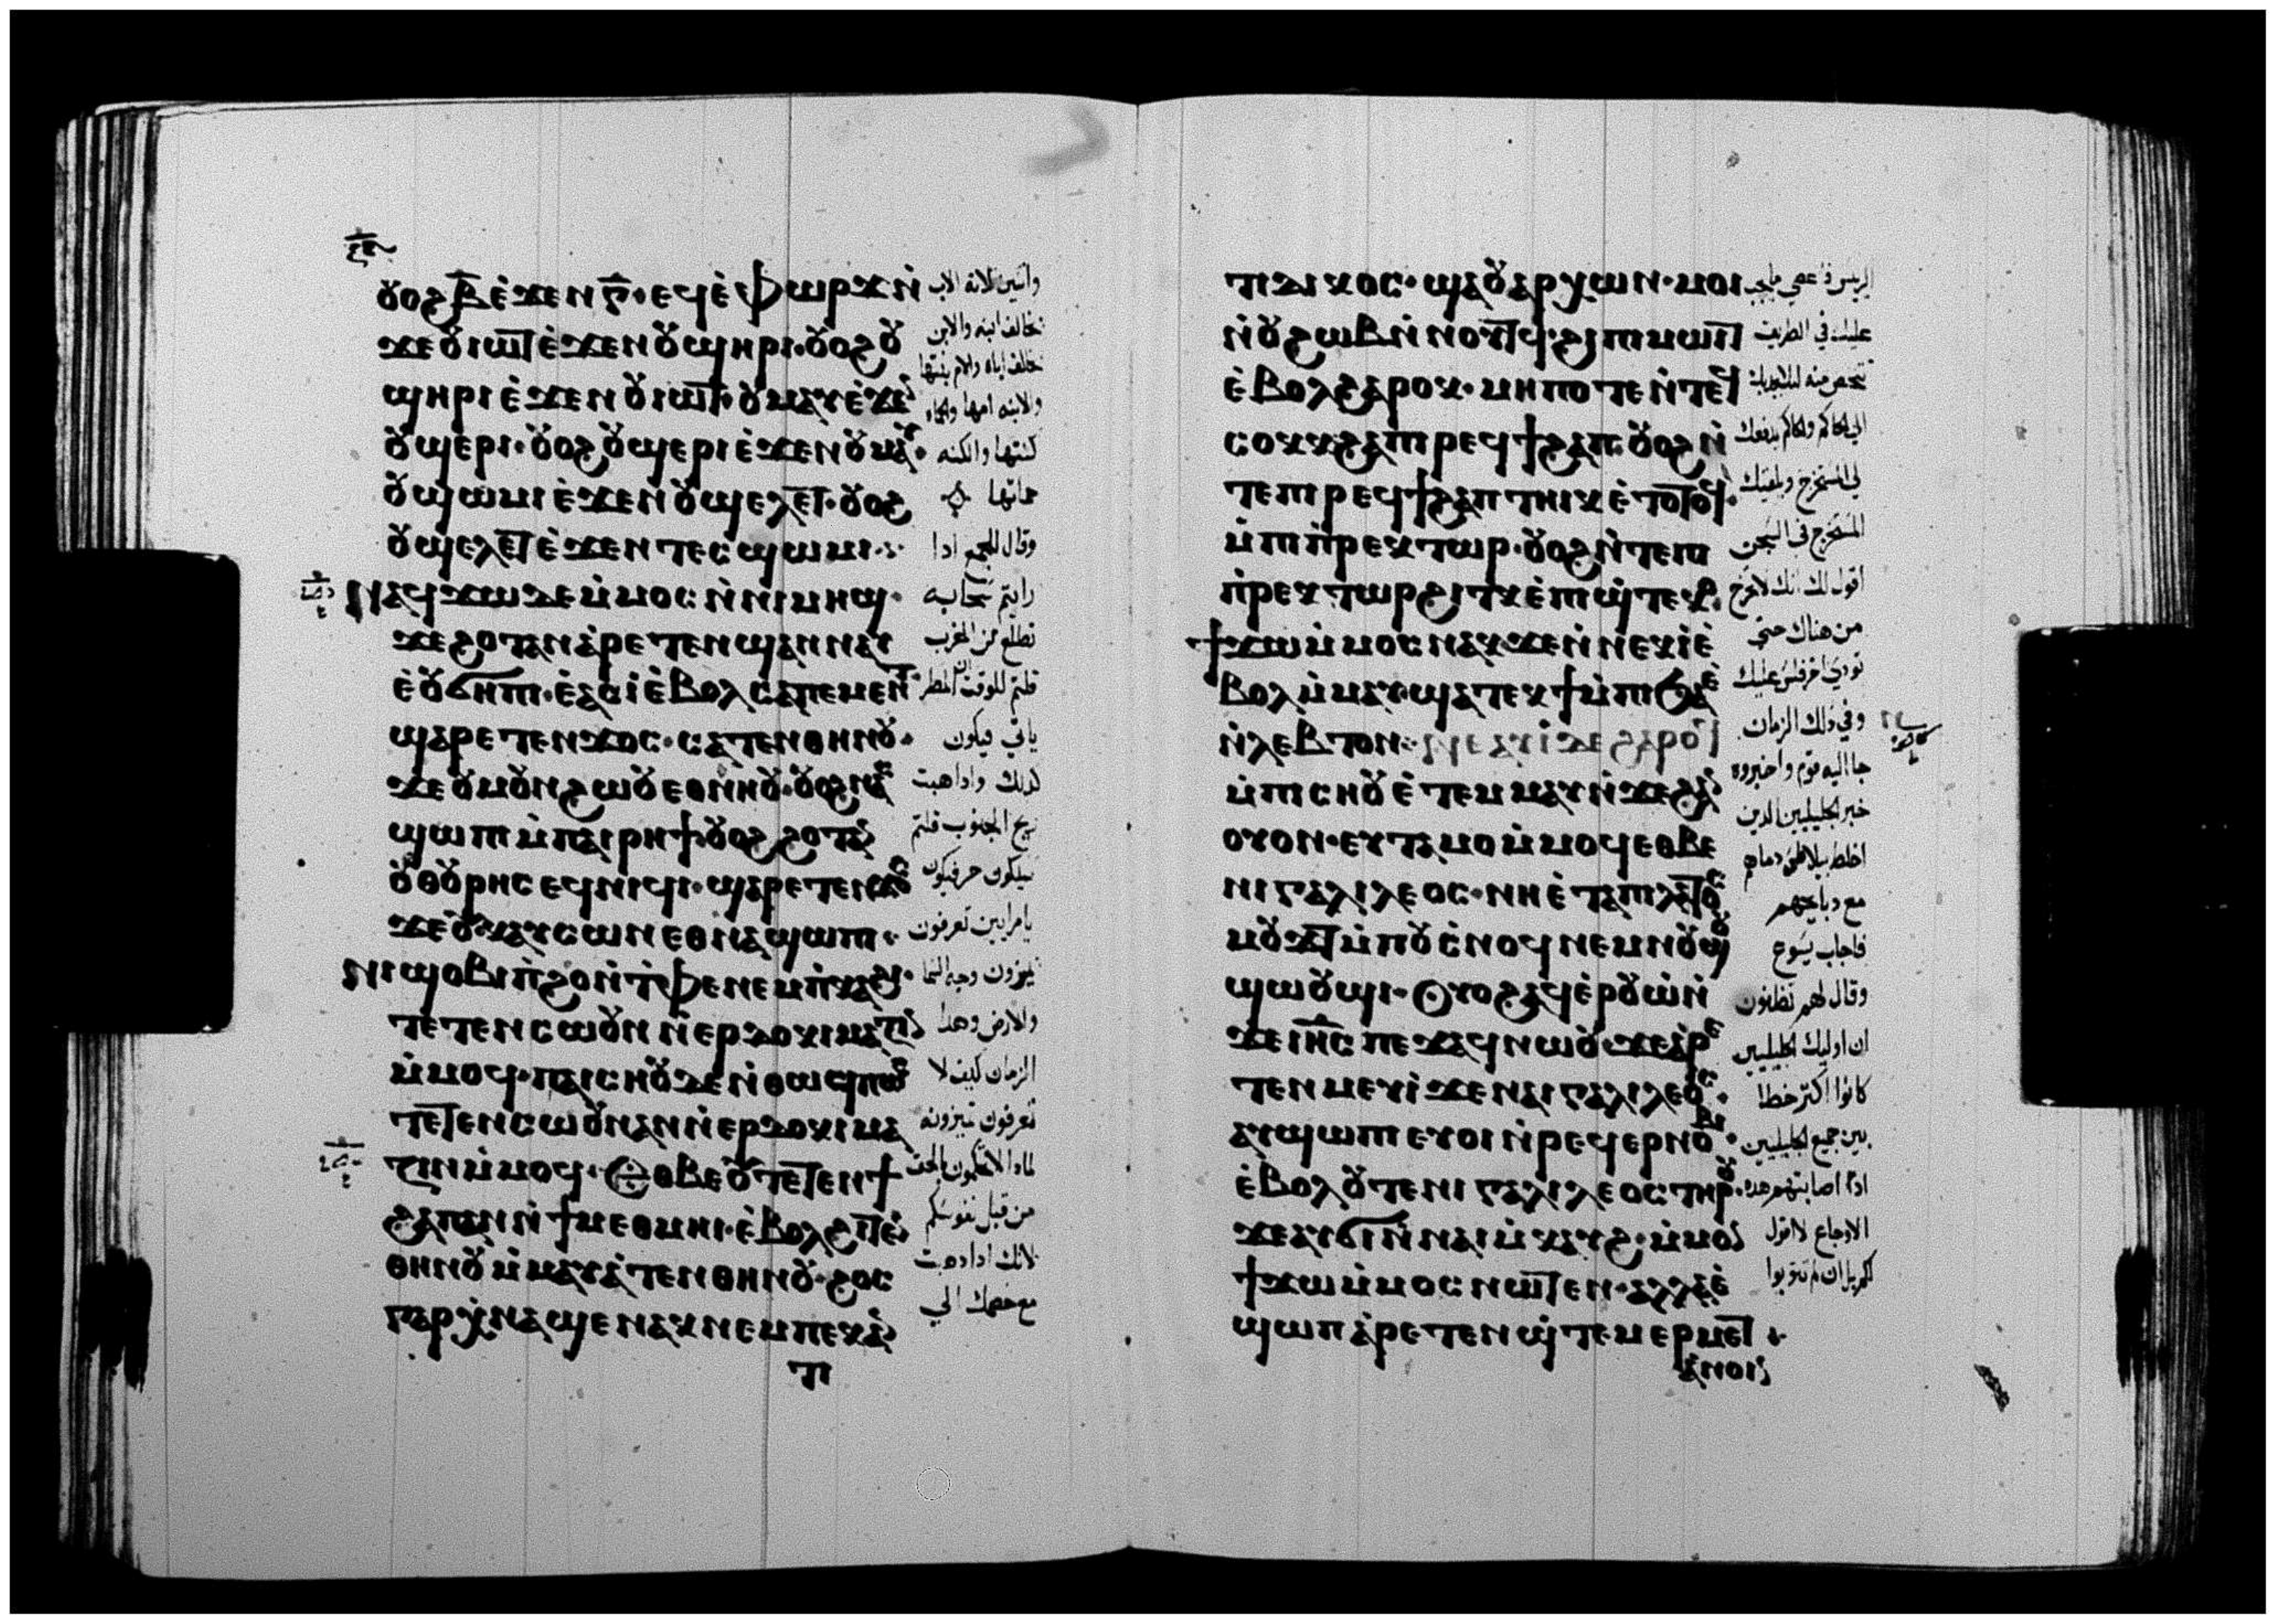 ⲟⲩⲟϩ ⲃ̅ ⲉ̀ϫⲉⲛ ⲅ̅· ⲉϥⲉ̀ⲫⲱⲣϫ ⲛ̀
ϫⲉ ⲟⲩⲓⲱⲧ ⲉ̀ϫⲉⲛ ⲟⲩϣⲏⲣⲓ· ⲟⲩⲟϩ ⲟⲩ
ϣⲏⲣⲓ ⲉ̀ϫⲉⲛ ⲟⲩⲓⲱⲧ· ⲟⲩⲙⲁⲩ ⲉ̀ϫⲉ
ⲟⲩϣⲉⲣⲓ· ⲟⲩⲟϩ ⲟⲩϣⲉⲣⲓ ⲉ̀ϫⲉⲛ ⲟⲩⲙⲁⲩ·
ⲟⲩϣⲱⲙⲓ ⲉ̀ϫⲉⲛ ⲟⲩϣⲉⲗⲉⲧ· ⲟⲩⲟϩ
ⲟⲩϣⲉⲗⲉⲧ ⲉ̀ϫⲉⲛ ⲧⲉⲥϣⲱⲙⲓ
ⲛⲁϥϫⲱ ⲇⲉ ⲙ̀ⲙⲟⲥ ⲛ̀ⲛⲓⲙⲏϣ·
ϫⲉ ϩⲟⲧⲁⲛ ⲁ̀ⲣⲉⲧⲉⲛϣⲁⲛⲛⲁⲩ
ⲉ̀ⲟⲩϭⲏⲡⲓ· ⲉ̀ⲁⲥⲓ̀ ⲉ̀ⲃⲟⲗ ⲥⲁⲡⲉⲙⲉⲛⲧ
ϣⲁⲣⲉⲧⲉⲛϫⲟⲥ· ⲥⲁⲧⲉⲛⲑⲏⲛⲟⲩ·
ϫⲉ ⲟⲩⲙⲟⲩⲛϩⲱⲟⲩ ⲉⲑⲛⲏⲟⲩ· ⲟⲩⲟϩ ϣⲁⲥ
ϣⲱⲡⲓ ⲙ̀ⲡⲁⲓⲣⲏϯ· ⲟⲩⲟϩ ϩⲟⲧⲁⲛ
ⲟⲩⲑⲟⲩⲣⲏⲥ ⲉϥⲛⲓϥⲓ· ϣⲁⲣⲉⲧⲉⲛϫⲟⲥ
ϫⲉ ⲟⲩⲭⲁⲩⲥⲱⲛ ⲉⲑⲛⲁϣⲱⲡⲓ
ⲛⲓϣⲟⲃⲓ ⲡ̀ϩⲟ ⲛ̀ⲧ̀ⲫⲉ ⲛⲉⲙ ⲡ̀ⲕⲁϩⲓ·
ⲧⲉⲧⲉⲛⲥⲱⲟⲩⲛ ⲛ̀ⲉⲣⲇⲟⲕⲓⲙⲁⲍⲓⲛ
ⲙ̀ⲙⲟϥ· ⲡⲁⲓⲥⲏⲟⲩ ⲇⲉ ⲛ̀ⲑⲟϥ ⲡⲱⲥ
ⲧⲉⲧⲉⲛⲥⲱⲟⲩⲛ ⲁⲛ ⲛ̀ⲉⲣⲇⲟⲕⲓⲙⲁ
ⲍⲓⲛ ⲙ̀ⲙⲟϥ· ⲉⲑⲃⲉ ⲟⲩ ⲧⲉⲧⲉⲛϯ
ϩⲁⲡ ⲁⲛ ⲛ̀ϯⲙⲉⲑⲙⲏⲓ· ⲉ̀ⲃⲟⲗ ϩⲓⲧⲉⲛ
ⲑⲏⲛⲟⲩ ⲙ̀ⲙⲁⲩⲁ̀ⲧⲉⲛⲑⲏⲛⲟⲩ· ϩⲟⲥ
ⲅⲁⲣ ⲭ̀ⲛⲁϣⲉ ⲛⲁⲕ ⲛⲉⲙ ⲡⲉⲕⲁⲛ
ⲧⲓ
واتنين ثلاثة الاب
تخالف ابنه والابن
يخالف اباه والام بنتها
والابنه امها والحماه
كنتها والكنه
حماتها
وقال للجمع ادا
رايتم سحابه
تطلع من المغرب
قلتم للوقت ان المطر
ياتي فيكون
كدلك وادا هبت
ريح الجنوب قلتم
سيكون حر فيكون
يا مرايين تعرفون
تميزون وجه السما
والارض وهدا
الزمان كيف لا
تعرفون تميزونه
لمادا لا تحكمون بالحق
من قبل نفوسكم
لانك ادا دهبت
مع خصمك الي
ⲧⲓⲇⲓⲕⲟⲥ· ϣⲁ ⲟⲩⲁⲣⲭⲱⲛ· ⲙⲟⲓ
ⲛ̀ⲟⲩϩⲱⲃ ⲛ̀ⲛⲟⲧϥ· ϩⲓ ⲡⲓⲙⲱⲓⲧ
ⲉ̀ⲃⲟⲗ ϩⲁⲣⲟⲕ· ⲙⲏⲡⲟⲧⲉ ⲛ̀ⲧⲉϥ
ⲥⲟⲕⲕ ϩⲁ ⲡⲓⲣⲉϥϯϩⲁⲡ· ⲟⲩⲟϩ ⲛ̀
ⲧⲉ ⲡⲓⲣⲉϥϯϩⲁⲡ ⲧⲏⲓⲕ ⲉ̀ⲧⲟⲧϥ
ⲙ̀ⲡⲓⲡ̀ⲣⲉⲕⲧⲱⲣ· ⲟⲩⲟϩ ⲛ̀ⲧⲉ ⲡⲓ
ⲡ̀ⲣⲉⲕⲧⲱⲣ ϩⲓⲧⲕ ⲉ̀ⲡⲓϣ̀ⲧⲉⲕⲟ
ϯϫⲱ ⲙ̀ⲙⲟⲥ ⲛⲁⲕ· ϫⲉ ⲛ̀ⲛⲉⲕⲓ̀ ⲉ̀
ⲃⲟⲗ ⲙ̀ⲙⲁⲩ· ϣⲁⲧⲉⲕϯ ⲙ̀ⲡⲓϧⲁⲉ̀
ⲛ̀ⲗⲉⲃⲧⲟⲛ· ⲛⲉⲁⲩⲓ̀ ⲇⲉ ϩⲁⲣⲟϥ
ⲙ̀ⲡⲓⲥⲏⲟⲩ ⲉ̀ⲧⲉⲙⲙⲁⲩ ⲛ̀ϫⲉ ϩⲁⲛ
ⲟⲩⲟⲛ· ⲉⲩⲧⲁⲙⲟ ⲙ̀ⲙⲟϥ ⲉⲑⲃⲉ
ⲛⲓⲅⲁⲗⲓⲗⲉⲟⲥ· ⲛⲏ ⲉ̀ⲧⲁ ⲡⲓⲗⲁⲧⲟⲥ
ⲙⲟⲩϫⲧ ⲙ̀ⲡⲟⲩⲥ̀ⲛⲟϥ ⲛⲉⲙ ⲛⲟⲩϣⲟⲩ
ϣⲱⲟⲩϣⲓ· ⲟⲩⲟϩ ⲁϥⲉ̀ⲣⲟⲩⲱ̀ ⲛ̀
ϫⲉ ⲓⲏ̅ⲥ̅ ⲡⲉϫⲁϥ ⲛⲱⲟⲩ· ϫⲉ ⲁ̀ⲣⲉ
ⲧⲉⲛⲙⲉⲩⲓ̀ ϫⲉ ⲛⲁⲓⲅⲁⲗⲓⲗⲉⲟⲥ·
ⲁⲩϣⲱⲡⲓ ⲉⲩⲟⲓ ⲛ̀ⲣⲉϥⲉⲣⲛⲟⲃⲓ·
ⲉ̀ⲃⲟⲗⲟⲩⲧⲉ ⲛⲓⲅⲁⲗⲓⲗⲉⲟⲥ ⲧⲏⲣⲟⲩ·
ϫⲉ ⲁⲩϭⲓ ⲛ̀ⲛⲁⲓⲙ̀ⲕⲁⲩϩ· ⲙ̀ⲙⲟⲛ
ϯϫⲱ ⲙ̀ⲙⲟⲥ ⲛⲱⲧⲉⲛ· ⲁⲗⲗⲁ ⲉ̀
ϣⲱⲡ ⲁ̀ⲣⲉⲧⲉⲛϣ̀ⲧⲉⲙⲉⲣⲙⲉⲧ
ⲁⲛⲟⲓⲛ
عليك في الطريق
تتخلص منه ليلا يجديك
الي الحاكم والحاكم يدفعك
الي المستخرج ويلقيك
المستخرج في السجن
اقول لك انك لا تخرج
من هناك حتي
تودي اخر فلس عليك
وفي دلك الزمان
جا اليه قوم واخبروه
خبر الجليليين الدين
اخلط بيلاطس دماهم
مع دبايحهم
فاجاب يسوع
وقال لهم تظنون
ان اوليك الجليليين
كانوا اكتر خطا
من جميع الجليليين
ادا اصابتهم هده
الاوجاع لا اقول
لكم بل ان لم تتوبوا